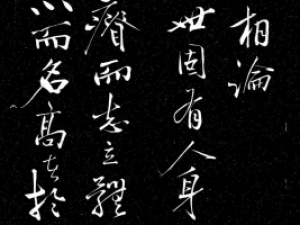 相論
世固有人身
瘠而志立體
小而名高者於